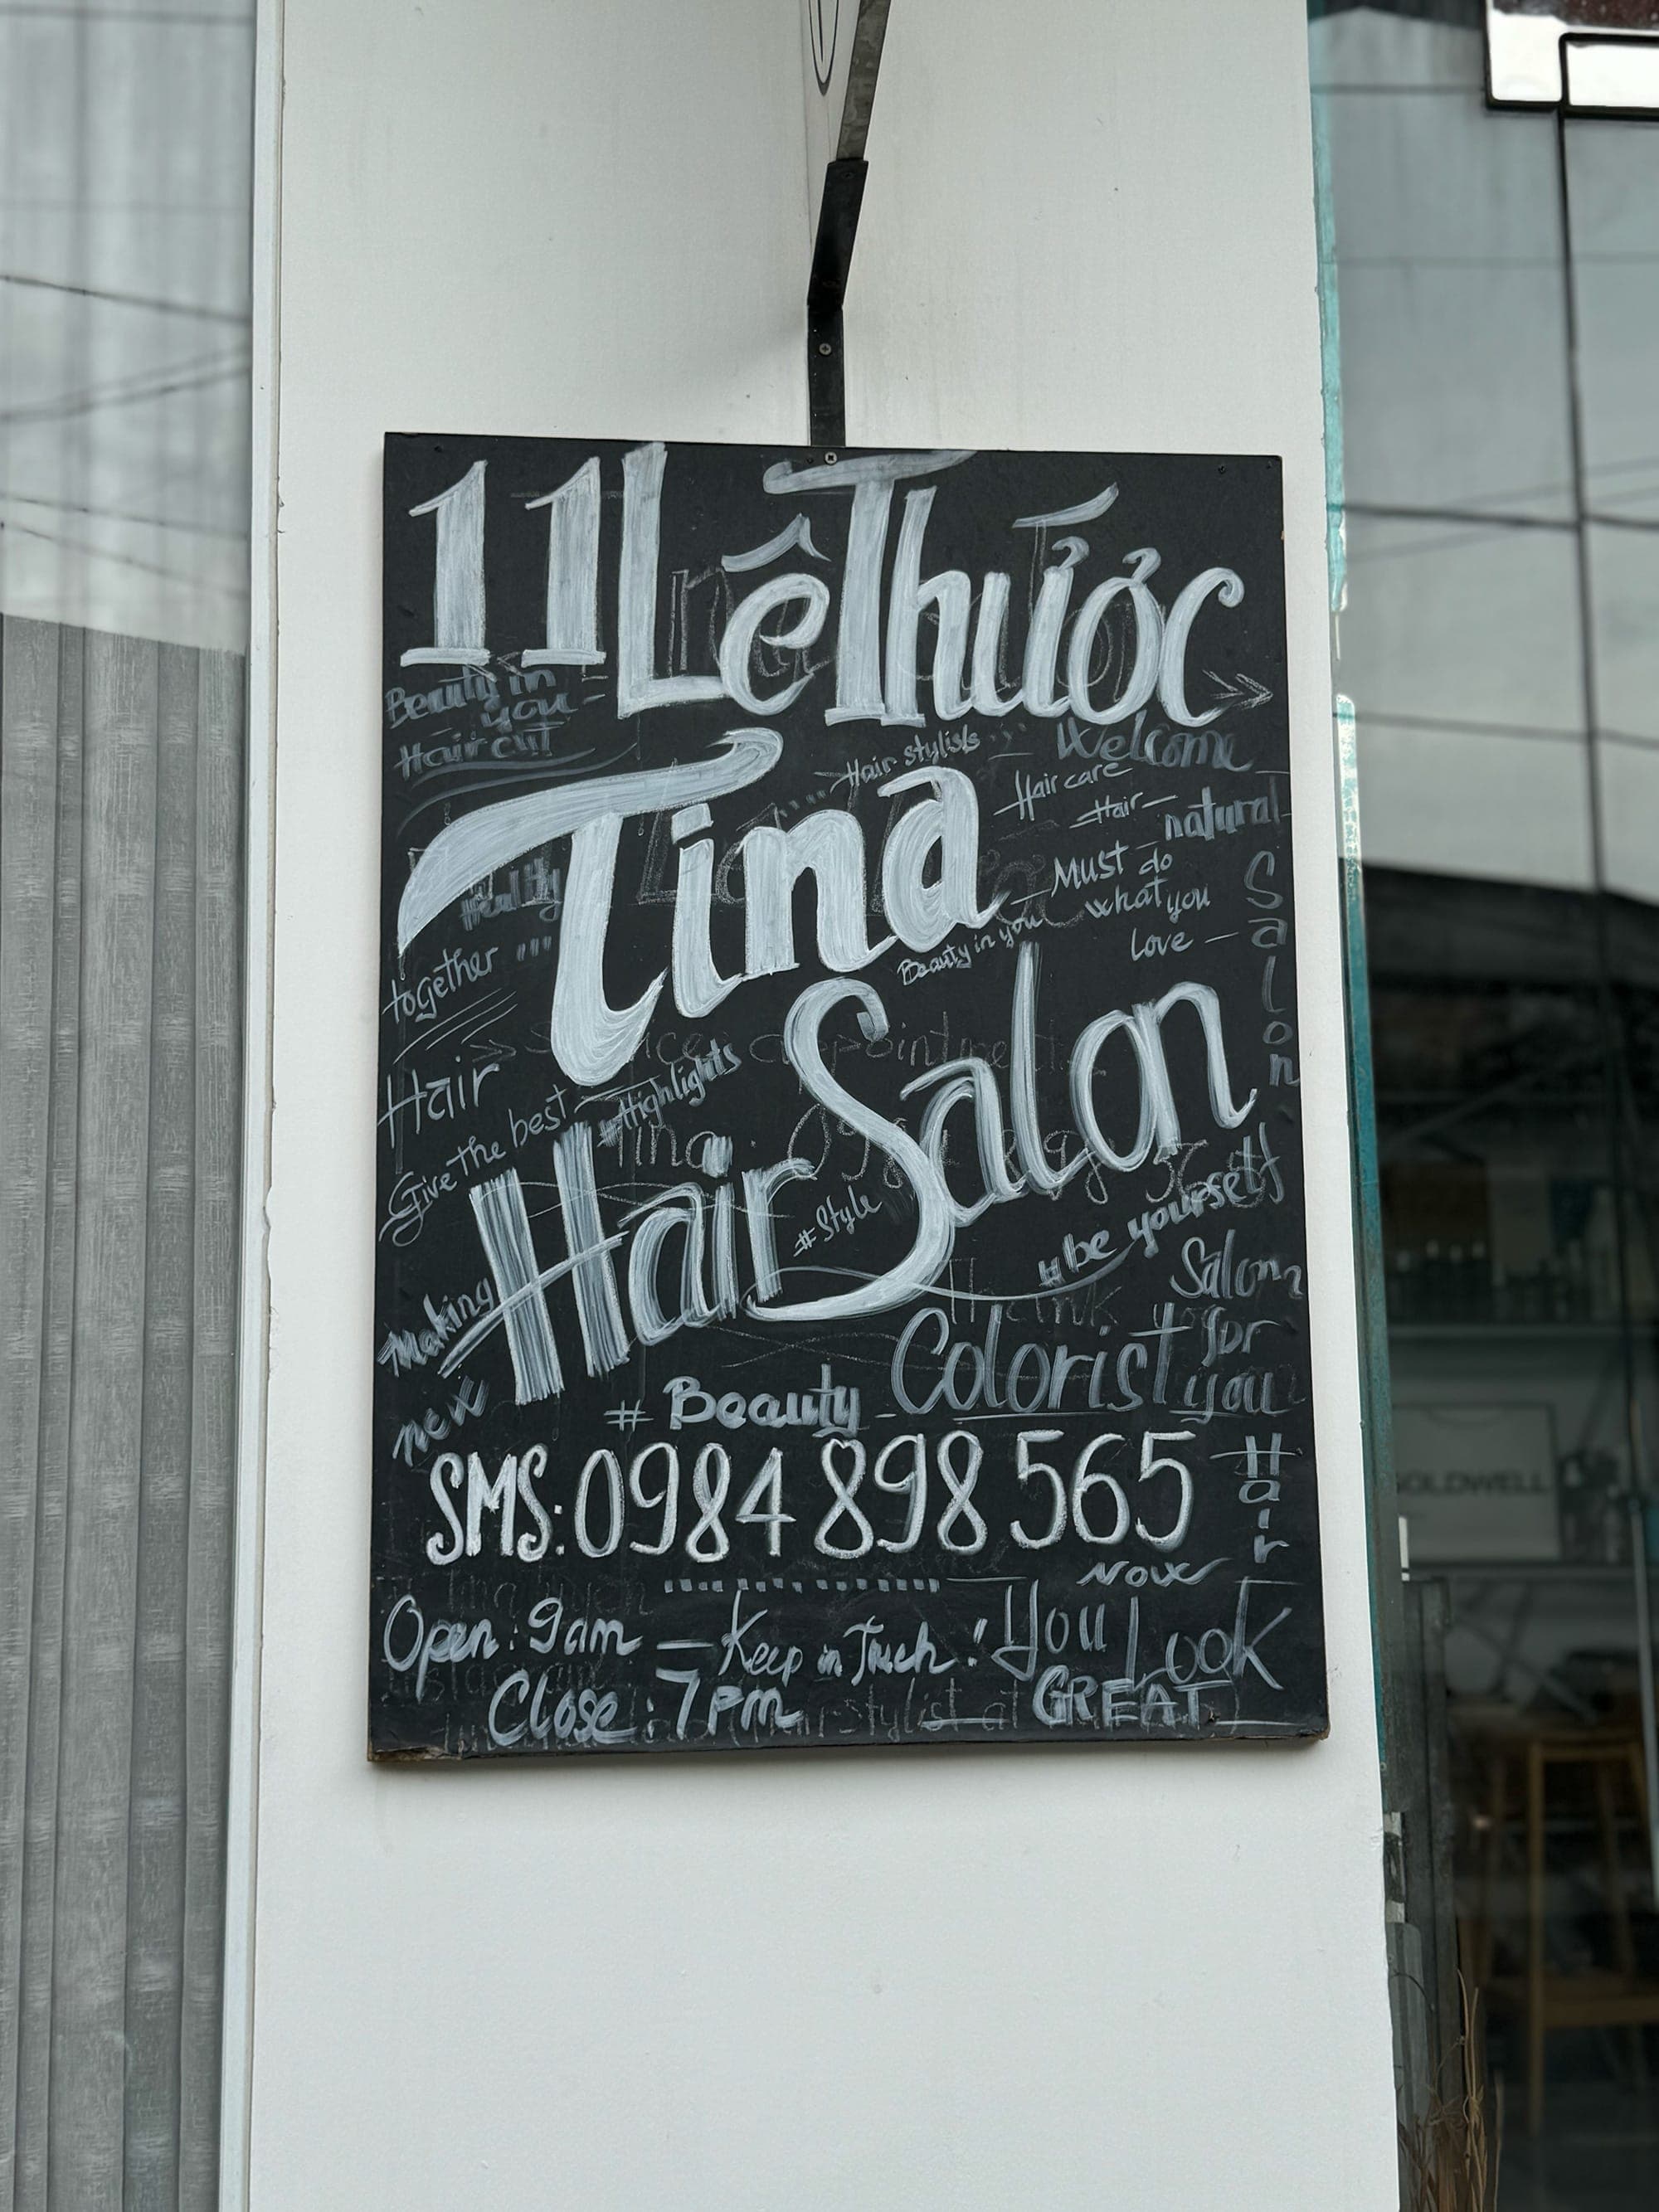 11 Lê Thước
Beauty in
you
Hair cut
Welcome
Hair stylists
Hair care
Hair
natural
Tina
Healthy
together
Must do
what you
Love
Beauty in you
Salon
Hair
Give the best
#Highlights
Hair Salon
#Style
#be yourself
Making
new
Salon
for
you
Thank
Colorist
# Beauty
SMS: 0984 898 565
Hair
Now
Open: 9am — Keep in Touch! You Look
Close: 7pm
GREAT
GOLDWELL